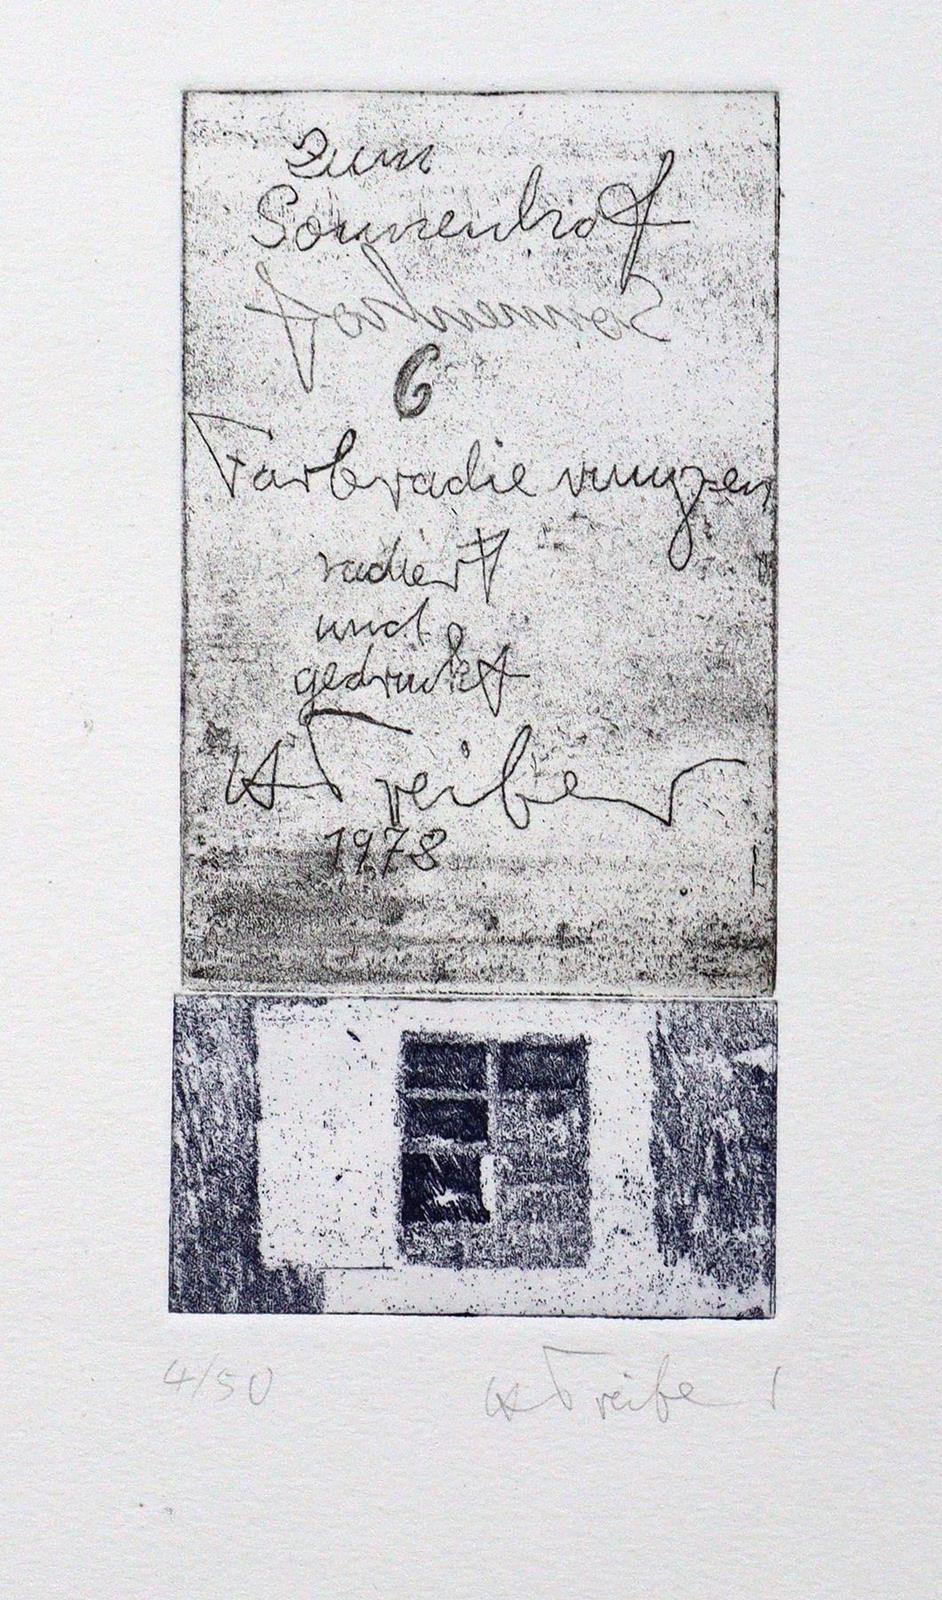 zum
Sonnenhof
Sonnenhof
6
Farbradierungen
radiert
und
gedruckt
H Treiber
1978
4/50
H Treiber